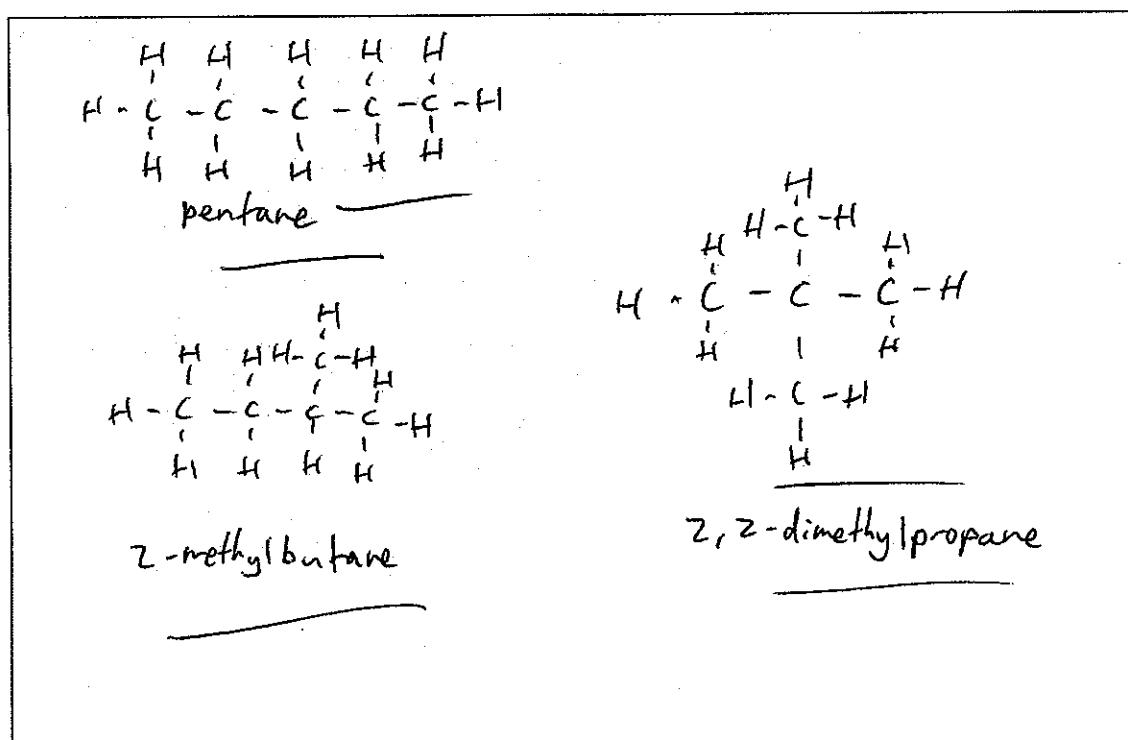 H H H H H
H - C - C - C - C - C - H
H H H H H
pentane
H
H H H - C - H H
H - C - C - C - C - H
H H H H
2-methylbutane
H
H H - C - H H
H - C - C - C - H
H H
H - C - H
H
2,2-dimethylpropane